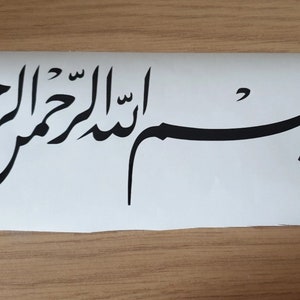 بسم الله الرَّحْمٰن الرح